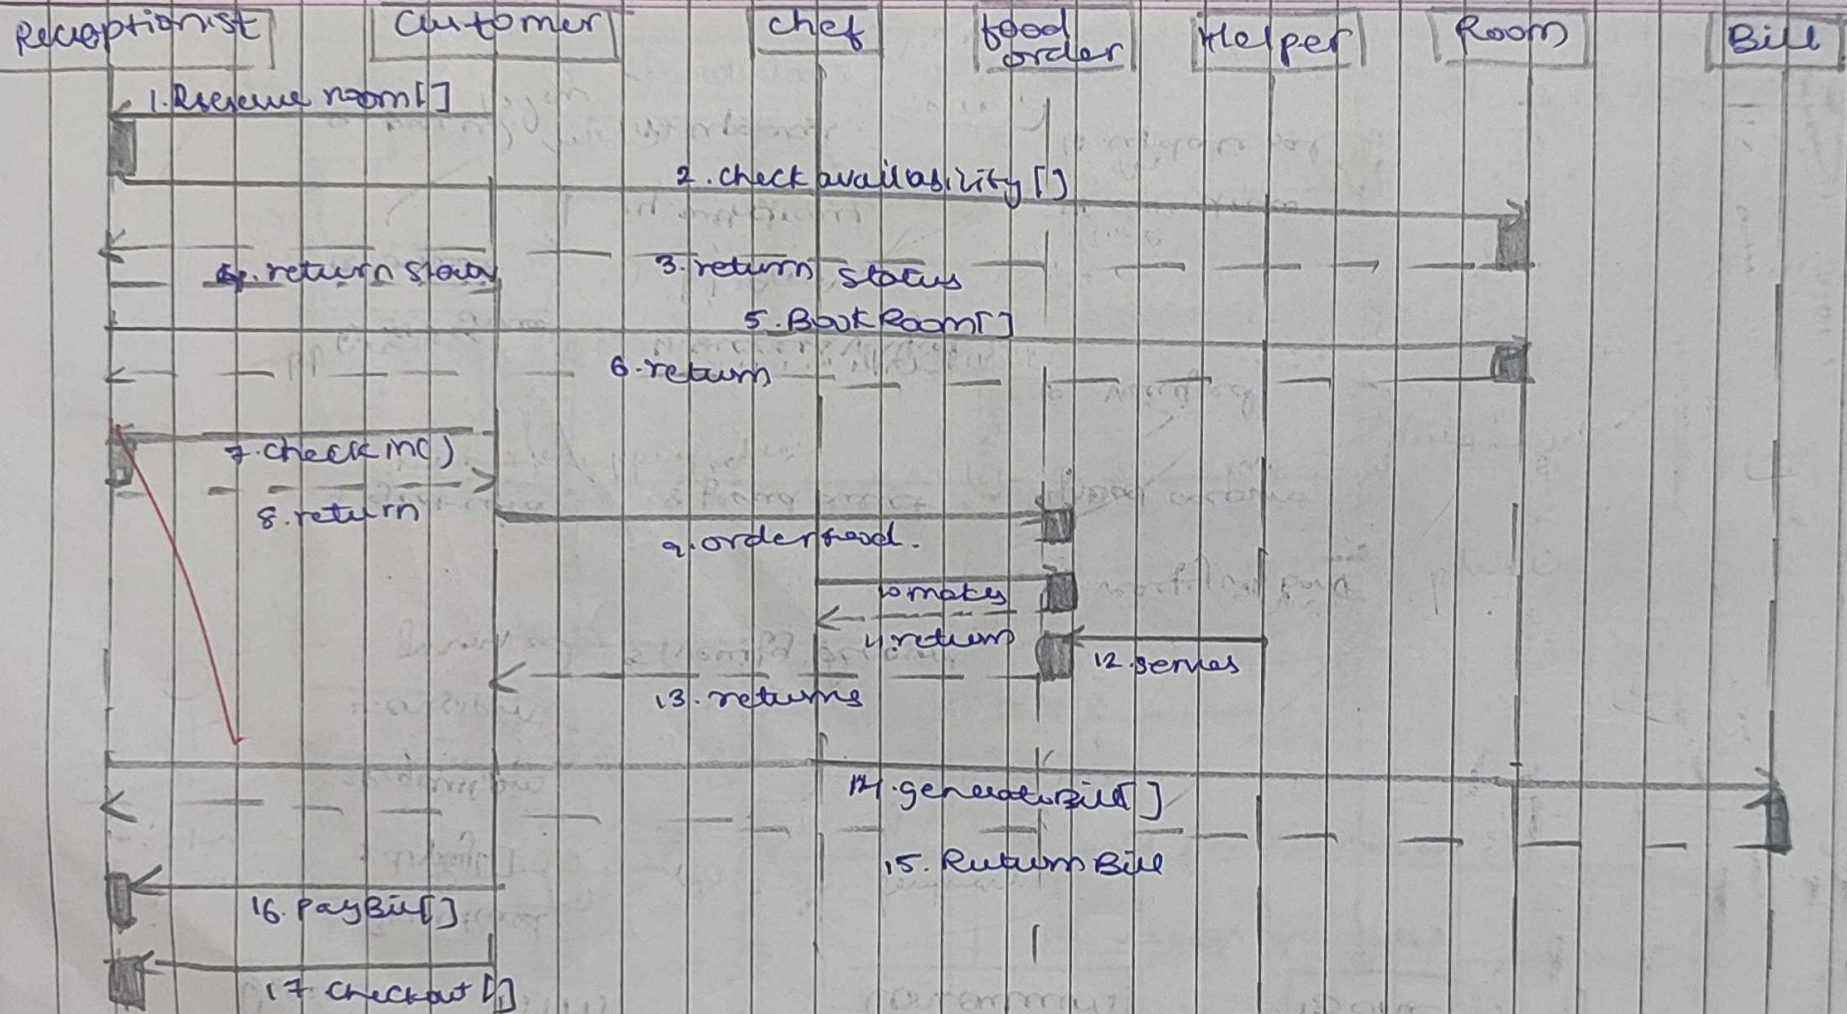 Receptionist
Customer
chef
food
order
Helper
Room
Bill
1. Reserve room[]
2. check availability []
3. return status
4. return status
5. Book Room[]
6. return
7. check in()
8. return
9. order food.
10 makes
11. return
12. serves
13. returns
14. generateBill[]
15. Return Bill
16. PayBill[]
17 checkout []